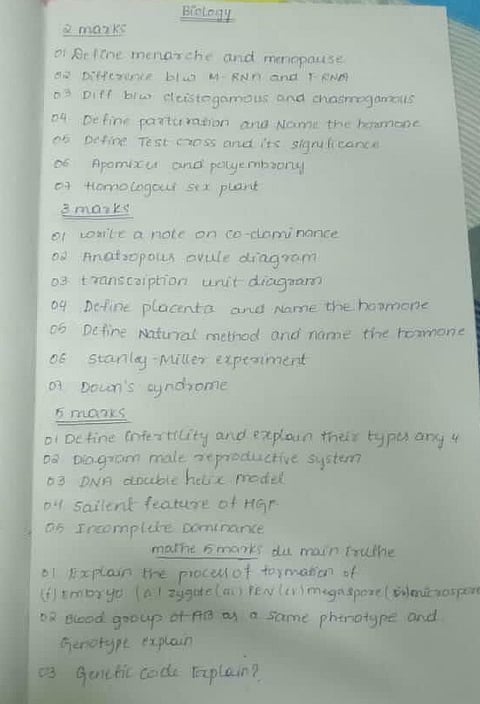 Biology
2 marks
01 Define menarche and menopause
02 Difference b/w M-RNA and T-RNA
03 Diff b/w cleistogamous and chasmogamous
04 Define parturation and Name the hormone
05 Define Test cross and its significance
06 Apomixis and polyembrony
07 Homologous sex plant
3 marks
01 write a note on co-dominance
02 Anatropous ovule diagram
03 transcription unit diagram
04 Define placenta and Name the hormone
05 Define Natural method and name the hormone
06 Stanley-Miller experiment
07 Down's syndrome
5 marks
01 Define Infertility and explain their types any 4
02 Diagram male reproductive system
03 DNA double helix model
04 Sailent feature of HGP
05 Incomplete Dominance
mathe 5 marks du main truthe
01 Explain the process of formation of
(i) Embryo (ii) zygote (iii) PEN (iv) megaspore (v) microspore
02 Blood group of AB as a same phenotype and
Genotype explain
03 Genetic code Explain?